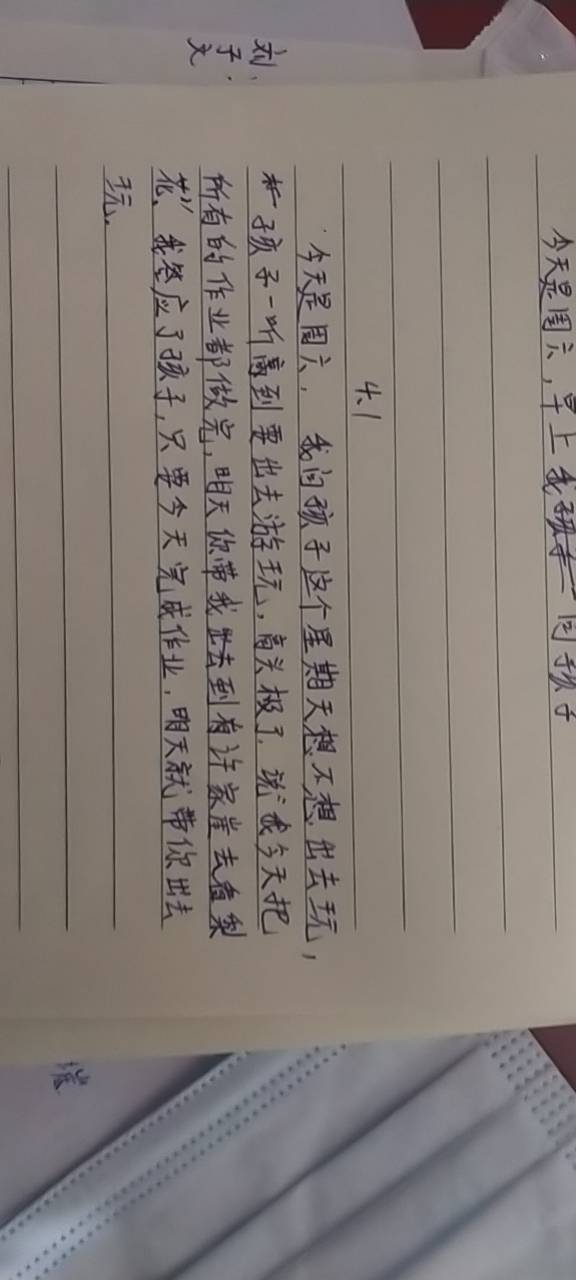 刘子文
今天是周六,早上我问孩子
4.1
今天是周六, 我问孩子这个星期天想不想出去玩,
孩子一听到要出去游玩,高兴极了.说:我今天把
所有的作业都做完,明天你带我到许家崖去看梨
花”我答应了孩子,只要今天完成作业,明天就带你出去
玩.